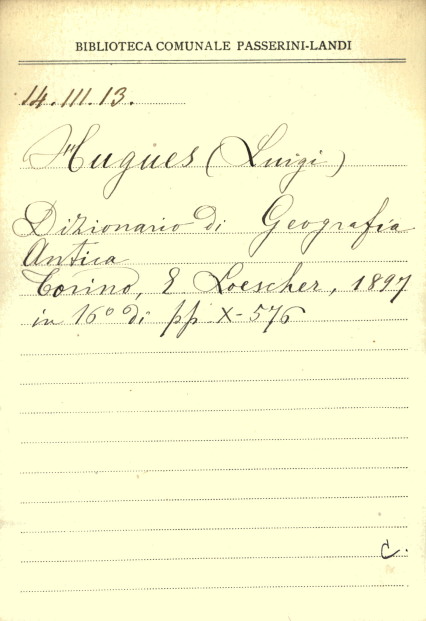 BIBLIOTECA COMUNALE PASSERINI-LANDI
14.III.13.
Hugues (Luigi)
Dizionario di Geografia
Antica
Torino, E. Loescher, 1897
in 16° di pp X-576
C.